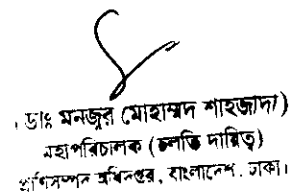 (ডাঃ মনজুর মোহাম্মদ শাহজাদা)
মহাপরিচালক (চলতি দায়িত্ব)
প্রাণিসম্পদ অধিদপ্তর, বাংলাদেশ, ঢাকা।